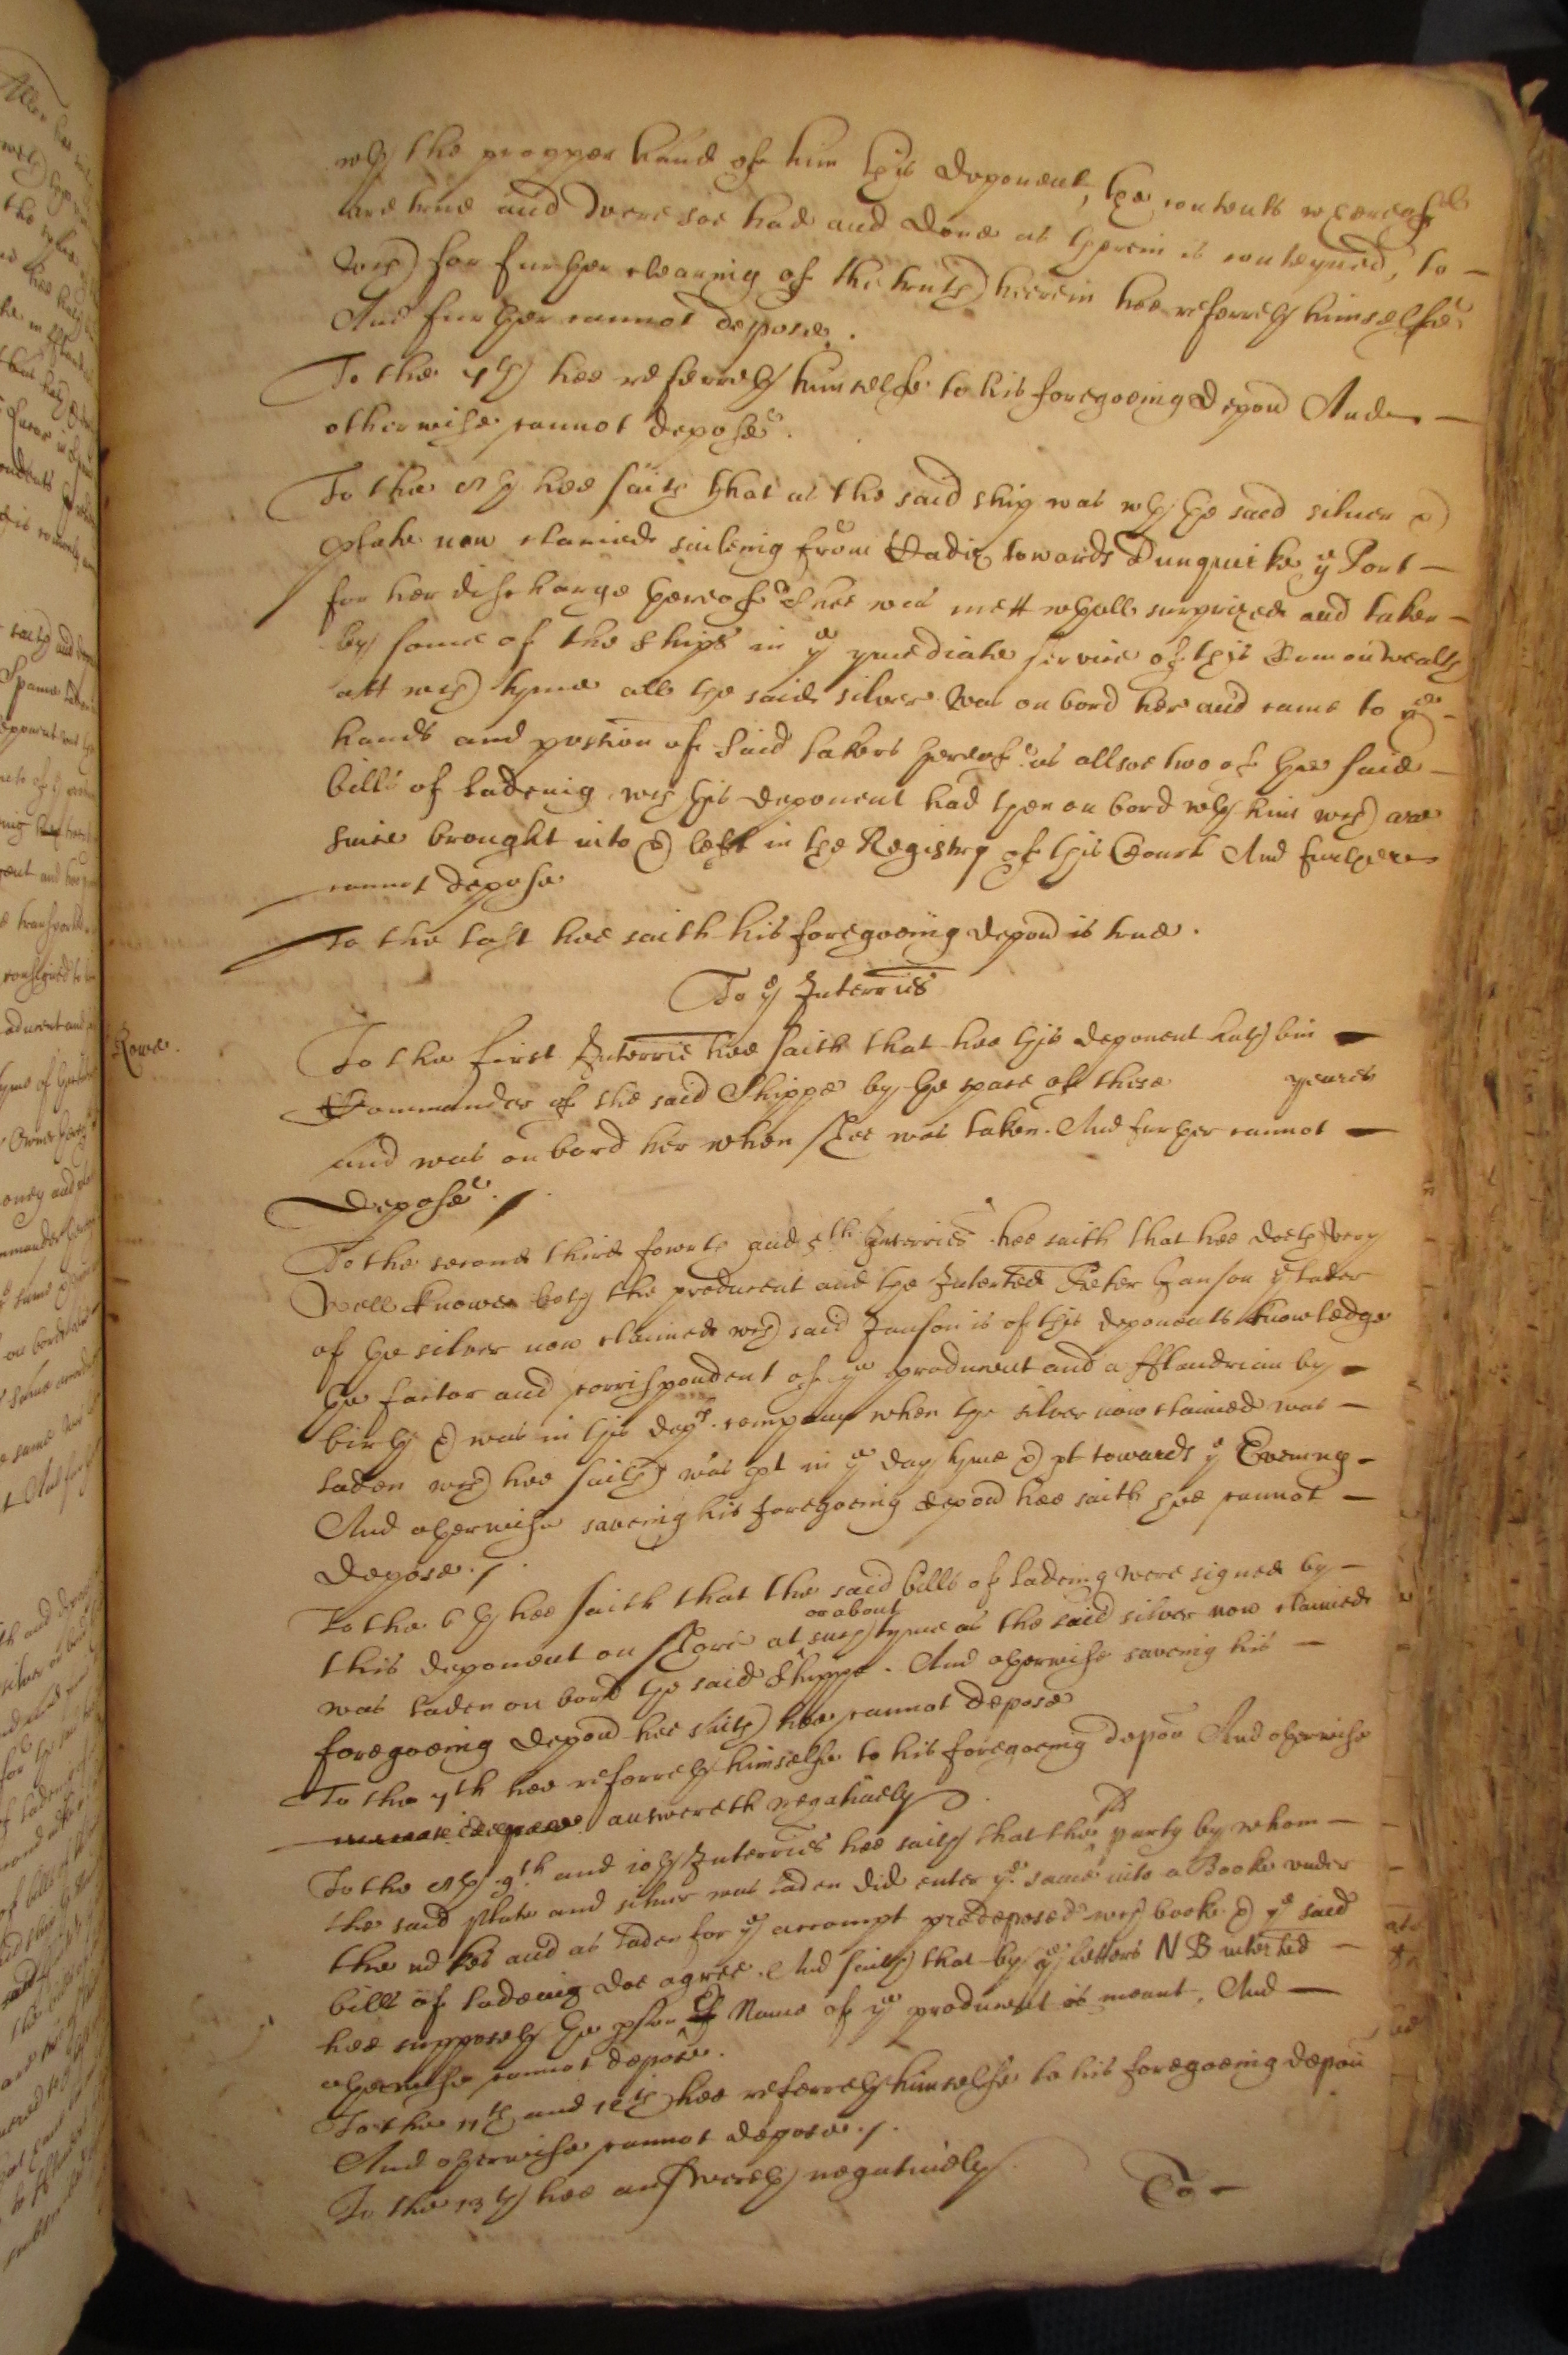 wth the propper hand of him this deponent, the contents whereof
are true and were soe had and done as therein is conteyned, to
wch for further clearing of the truth heerein hee referreth himselfe
And further cannot depose.
To the 7th hee referreth himselfe to his foregoeing depon And
otherwise cannot depose.
To the 8th hee saith that as the said ship was wth the said silver &
plate now claimed saileing from Cadiz towards Dunquirke ye Port
for her discharge thereof shee was mett wthall surprized and taken
by some of the ships in ye ymediate service of this Comonwealth
att wch tyme all the said silver was on bord her and came to ye
hands and possion of said takers thereof as allsoe two of the said
bills of ladeing wch this deponent had then on bord wth him wch are
since brought into & left in the Registry of this Court And further
cannot depose
To the last hee saith his foregoeing depon is true.
To ye Interries
Rowe.
To the first Interrie hee saith that hee this deponent hath bin
Commander of the said Shippe by the space of three yeares
and was on bord her when shee was taken. And further cannot
depose ./.
To the second third fowrth and 5th Interries hee saith that hee doeth very
well knowe both the producent and the Interrted Peter Janson ye lader
of the silver now claimed wch said Janson is of this deponents knowledge
the factor and corrispondent of ye producent and a Fflandrian by
birth & was in this depts company when the silver now claimed was
laden wch hee saith was pt in ye day tyme & pt towards ye Evening
And otherwise saveing his foregoeing depon hee saith hee cannot
depose ./.
To the 6th hee saith that the said bills of ladeing were signed by
this deponent on shore at or about such tyme as the said silver now claimed
was laden on bord the said Shippe. And otherwise saveing his
foregoeing depon hee saith hee cannot depose
To the 7th hee referreth himselfe to his foregoeing depon And otherwise
answereth negatively
To the 8th 9th and 10th Interries hee saith that the sd party by whom
the said plate and silver was laden did enter ye same into a Booke under
the mkes and as laden for ye accompt predeposed wch booke & ye said
bills of ladeing doe agree. And saith that by ye letters N B interrted
hee supposeth the pson & Name of ye producent is meant. And
otherwise cannot depose.
To the 11th and 12th hee referreth himselfe to his foregoeing depon
And otherwise cannot depose ./.
To the 13th hee answereth negatively
To